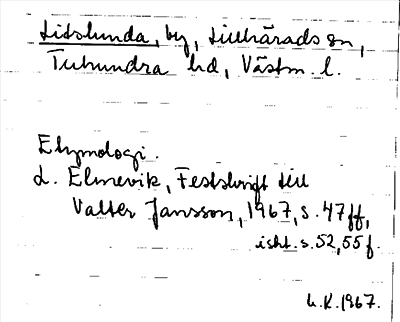 Litslunda, by, Lillhärads sn,
Tuhundra hd, Västm. l.
Etymologi.
L. Elmevik, Festskrift till
Valter Jansson, 1967, s. 47 ff,
isht. s. 52, 55 f.
1967.